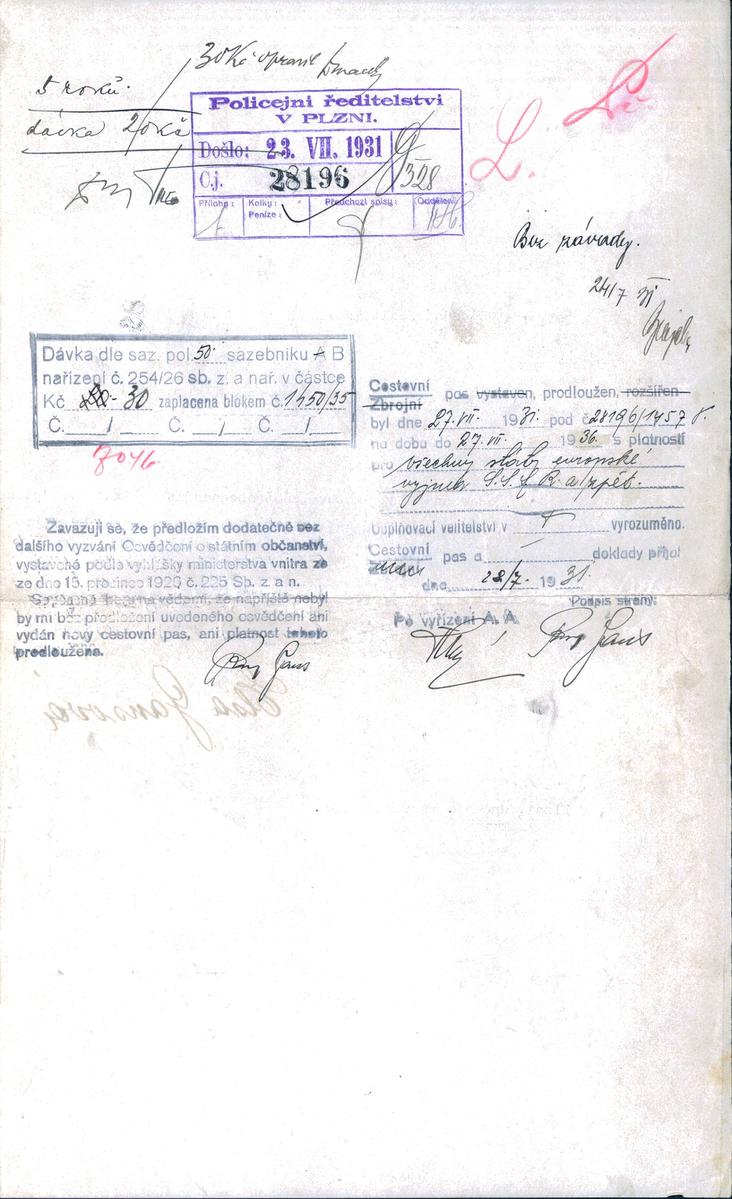 30 Kč opravil
5 roků.
dávka 20 Kč
Policejní ředitelství
V PLZNI.
Došlo: 23. VII. 1931
Čj. 28196
328
Příloh: Kolky: Předchozí spisy: Oddělení
Peníze:
1
L.
Bez závady.
24/7 31
Dávka dle saz. pol. 50 sazebníku A B
nařízení č. 254/26 sb. z. a nař. v částce
Kč 20.- 30 zaplacena blokem č. 1450/35
Č. / Č. / Č. /
7046
Cestovní pas vystaven, prodloužen, rozšířen
Zbrojní
byl dne 27.VII. 1931. pod č. 28196/1457
na dobu do 27.VII. 1936. s platností
pro všechny státy evropské
vyjma S.S.S.R. a zpět.
Doplňovací velitelství v vyrozuměno.
Cestovní pas a doklady přijal
dne 28/7. 1931.
Podpis strany:
Po vyřízení A. A.
Gans
Zavazuji se, že předložím dodatečně bez
dalšího vyzvání Osvědčení o státním občanství,
vystavené podle vyhlášky ministerstva vnitra ze
ze dno 15. prosince 1926 č. 225 Sp. z. a n.
Současně beru na vědomí, že napříště nebyl
by mi bez předložení uvedeného osvědčení ani
vydán nový cestovní pas, ani platnost tohoto
prodloužena.
Gans
Elsa Gansová